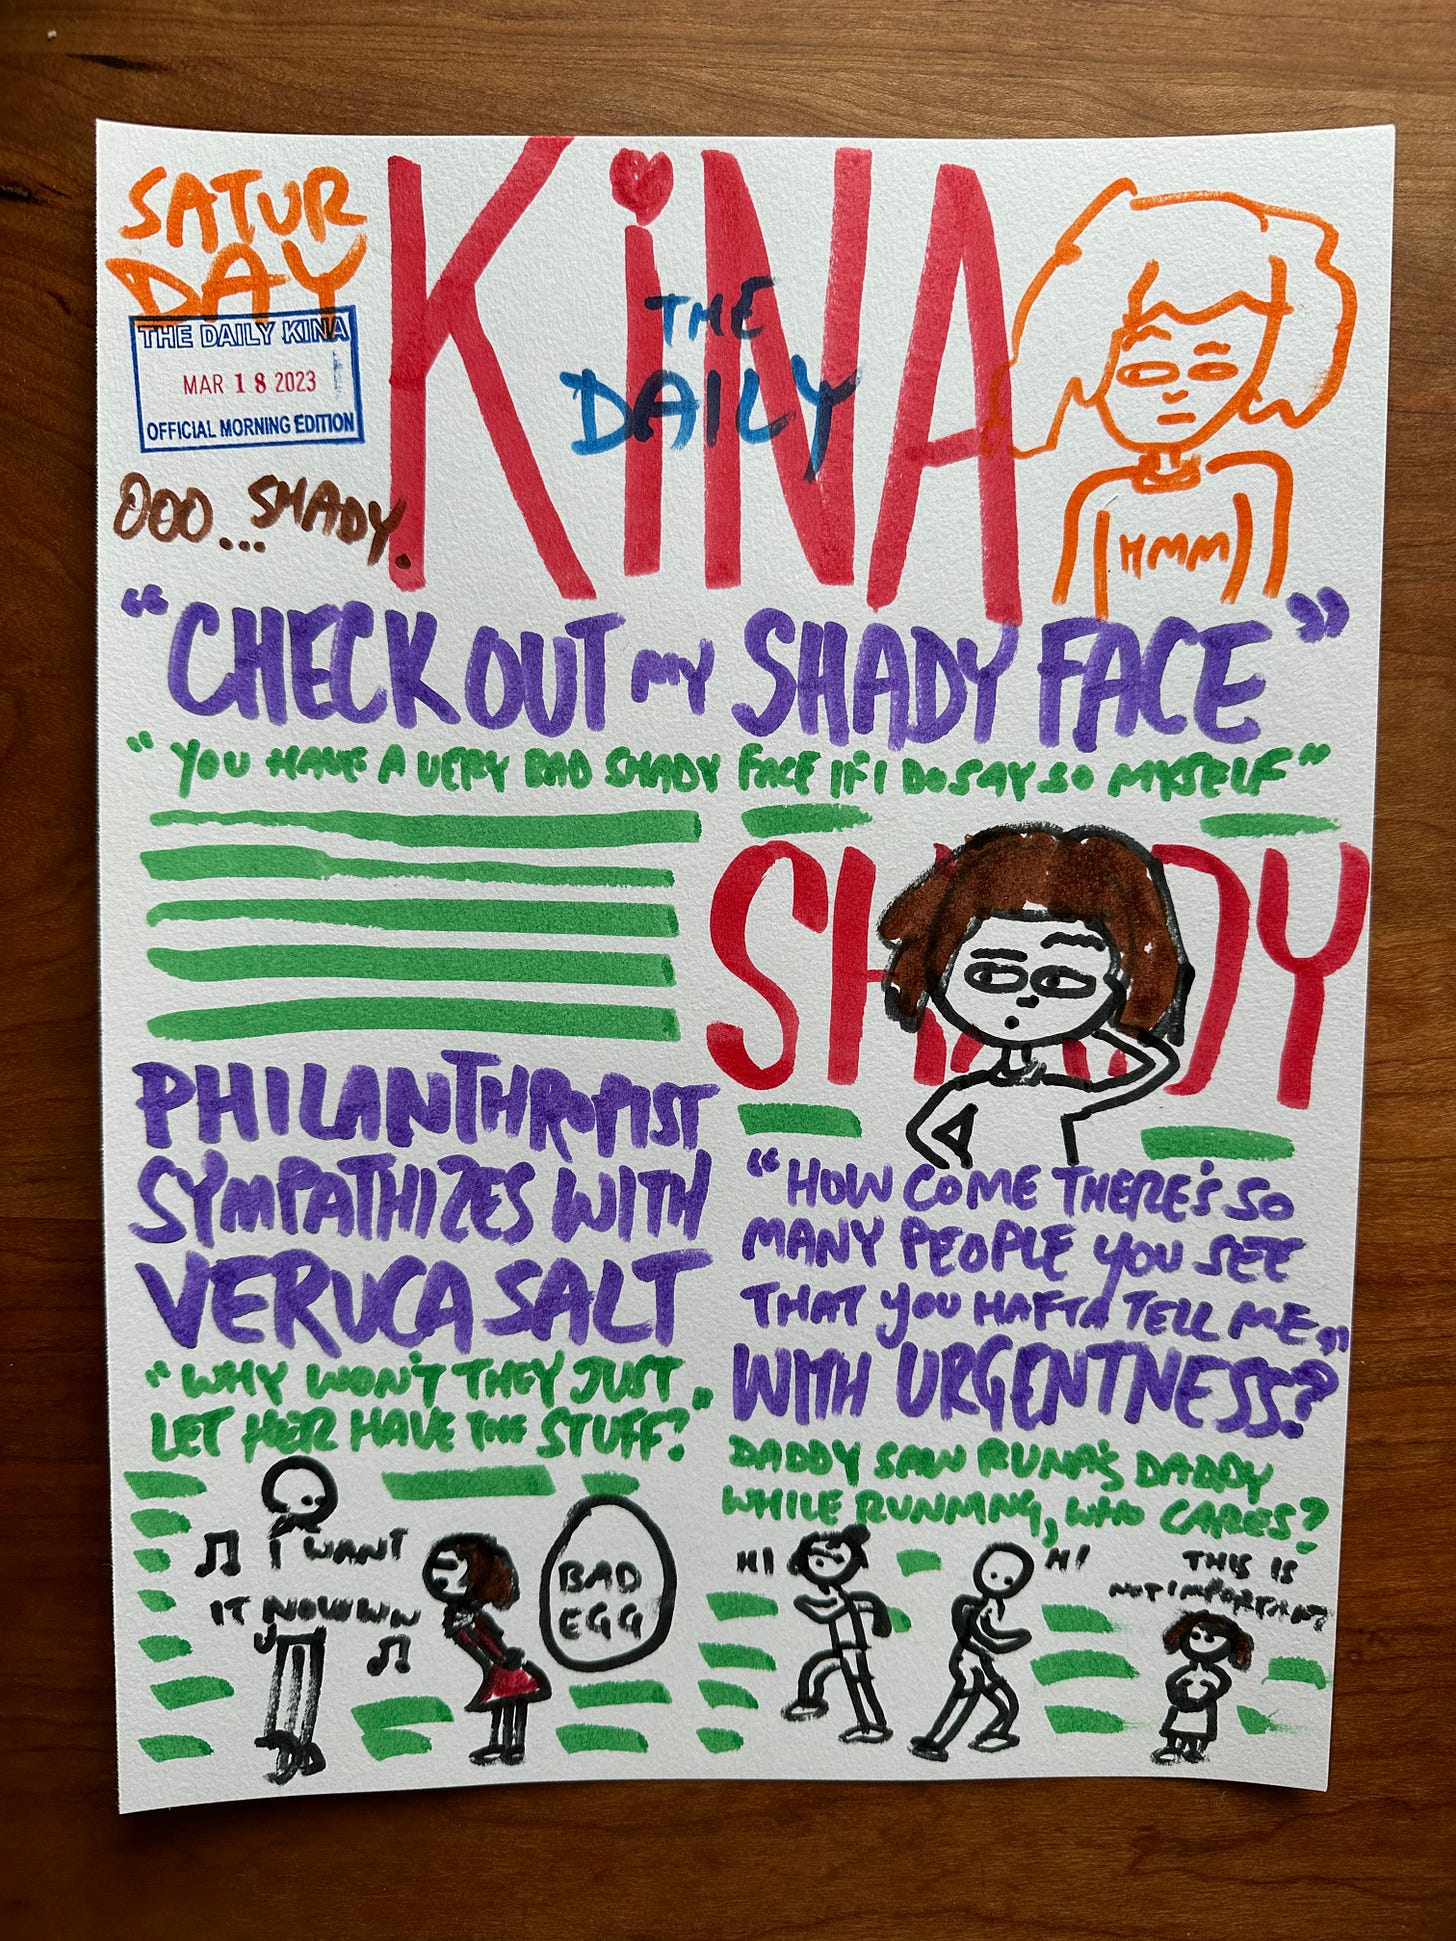 SATUR
DAY
THE DAILY KINA
MAR 18 2023
OFFICIAL MORNING EDITION
OOO... SHADY.
KiNA
THE
DAILY
HMM
"CHECK OUT MY SHADY FACE"
"YOU HAVE A VERY BAD SHADY FACE IF I DO SAY SO MYSELF"
SHADY
PHILANTHROPIST
SYMPATHIZES WITH
VERUCA SALT
"WHY WON'T THEY JUST
LET HER HAVE THE STUFF?"
I WANT
IT NOWWN
BAD
EGG
"HOW COME THERE'S SO
MANY PEOPLE YOU SEE
THAT YOU HAFTA TELL ME,"
WITH URGENTNESS?
DADDY SAW RUNA'S DADDY
WHILE RUNNING, WHO CARES?
HI
HI
THIS IS
NOT IMPORTANT